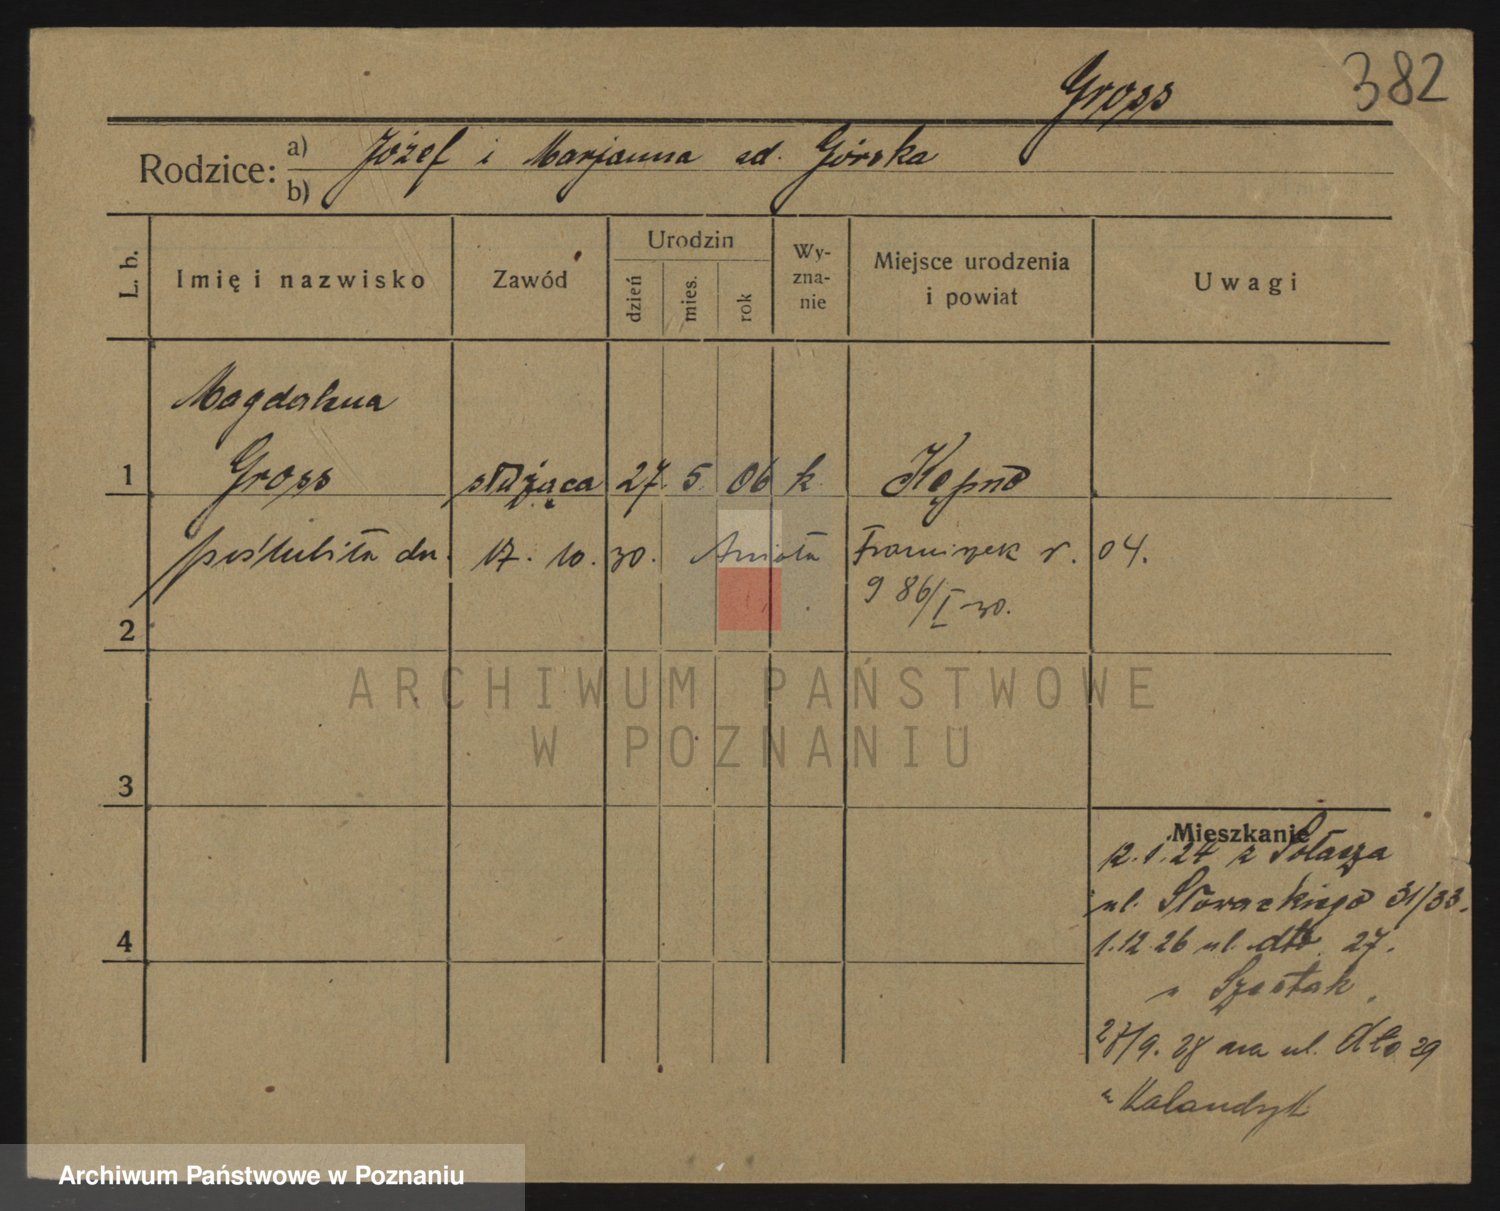 Gross 382
Rodzice: a) Józef i Marjanna zd. Górska
b)
L. b. Imię i nazwisko Zawód Urodzin dzień mies. rok Wy-zna-nie Miejsce urodzenia i powiat Uwagi
Magdalena
1 Gross służąca 27. 5. 06 k. Kępno
poślubiła dn. 17. 10. 30. Anioła Franciszek r. 04.
986/I 30.
2
3
Mieszkanie
12.1.24 z Sołacza
ul. Słowackiego 31/33.
4
1.12.26 ul. dto. 27.
" Szostak
27/9. 28 na ul. dto 29
" Kalandyk
ARCHIWUM PAŃSTWOWE
W POZNANIU
Archiwum Państwowe w Poznaniu